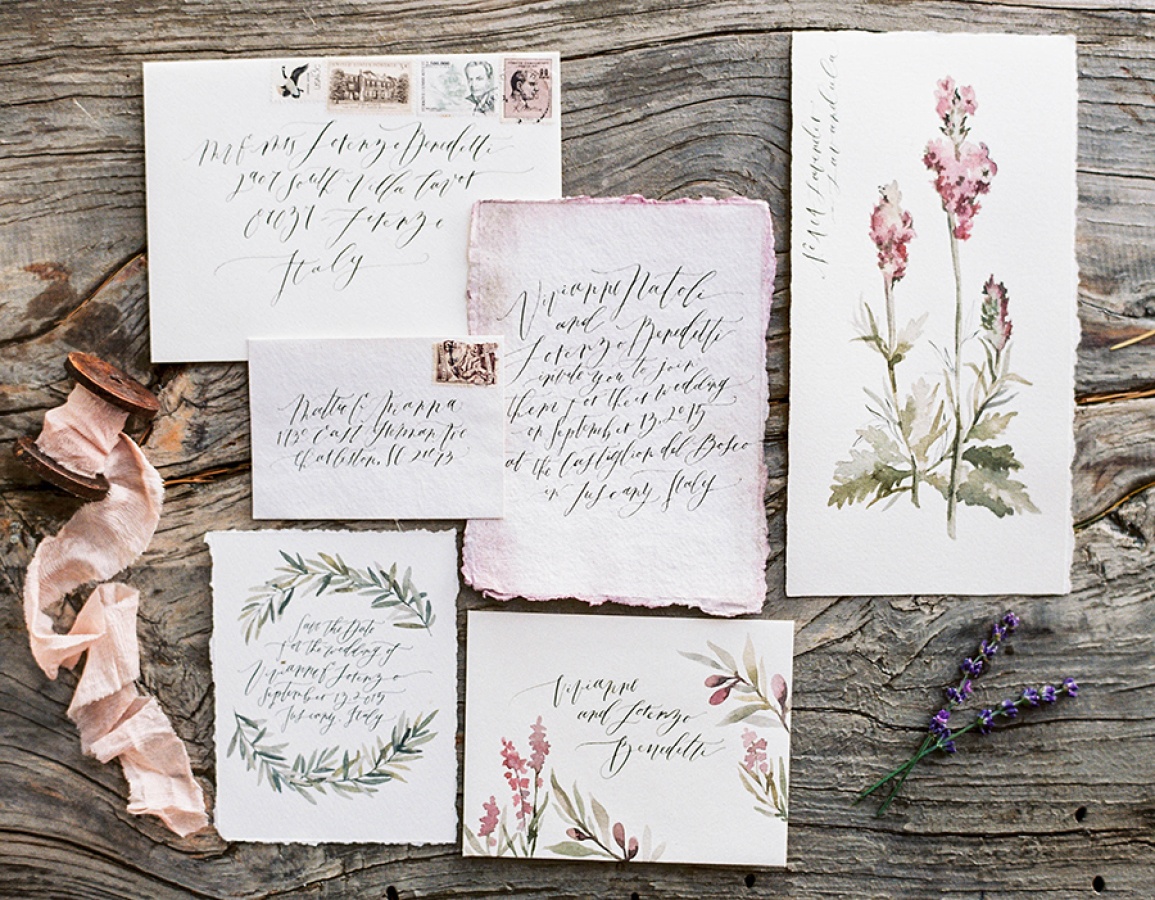 Mr & Mrs Lorenzo Benedetti
South Villa
Lorenzo
Italy
USA
Vivianne Natoli
and
Lorenzo Benedetti
invite you to join
them for their wedding
on September 13, 2015
at the Castiglion del Bosco
in Tuscany Italy
Lavender
Lavandula
East
Charleston, SC
Save the Date
for the wedding of
Vivianne & Lorenzo
September 13, 2015
Tuscany Italy
Vivianne
and Lorenzo
Benedetti